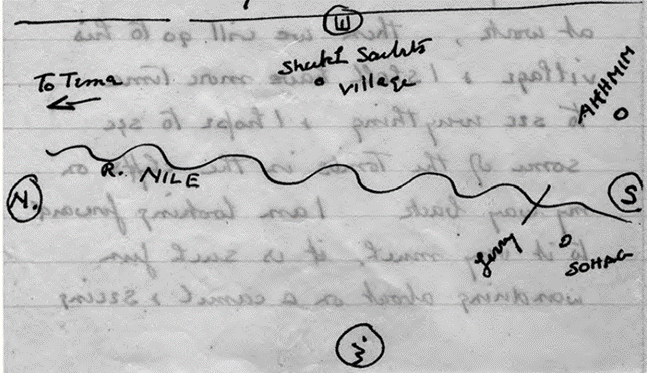 E
Village
To Tema
AKHMIM
R. NILE
N.
S
ferry
SOHAG
W
at work, then we will go to this
village & I shall have more time
to see everything & I hope to see
some of the Tombs in the on
my way back I am looking forward
to it very much, it is such fun
wandring about on a camel & seeing